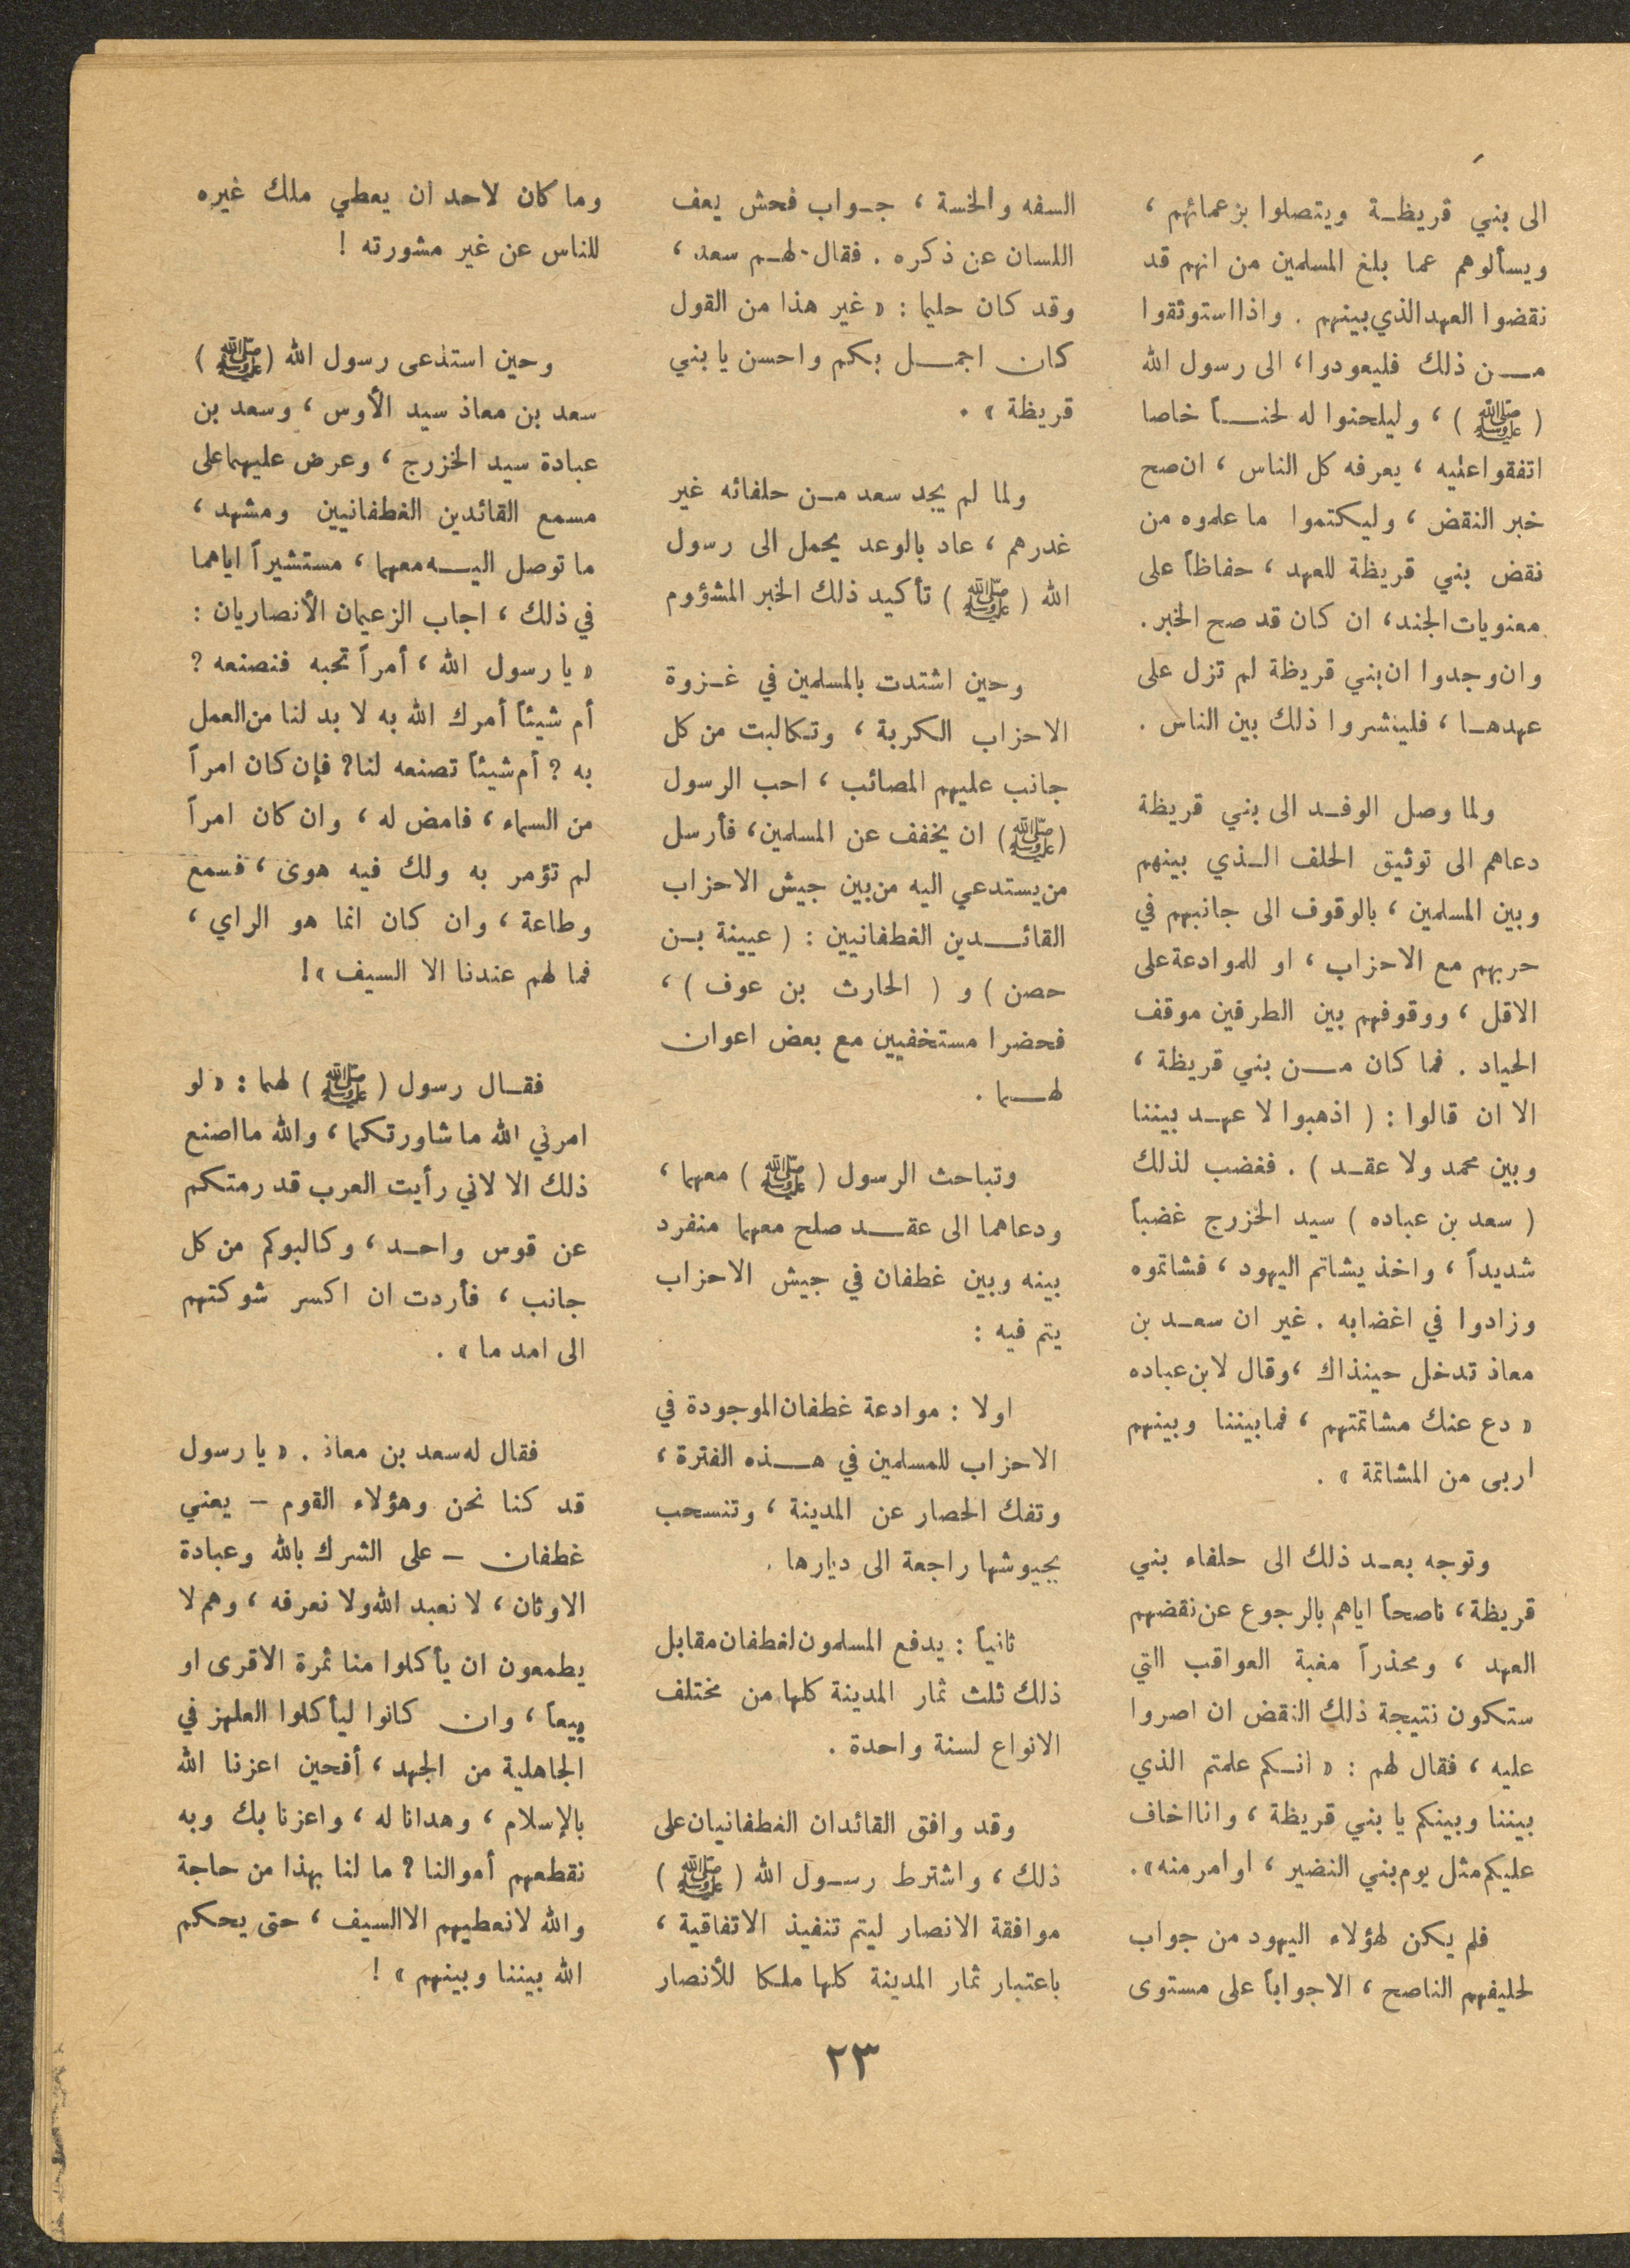 الى بني قريظـة ويتصلوا بزعمائهم ،
ويسألوهم عما بلغ المسلمين من انهم قد
نقضوا العهد الذي بينهم . واذا استوثقوا
مـن ذلك فليعودوا ، الى رسول الله
( ﷺ ) ، وليلحنوا له لحنـاً خاصا
اتفقوا عليه ، يعرفه كل الناس ، ان صح
خبر النقض ، وليكتموا ما علموه من
نقض بني قريظة للعهد ، حفاظاً على
معنويات الجند ، ان كان قد صح الخبر .
وان وجدوا ان بني قريظة لم تزل على
عهدهـا ، فلينشروا ذلك بين الناس .
ولما وصل الوفـد الى بني قريظة
دعاهم الى توثيق الحلف الـذي بينهم
وبين المسلمين ، بالوقوف الى جانبهم في
حربهم مع الاحزاب ، او للموادعة على
الاقل ، ووقوفهم بين الطرفين موقف
الحياد . فما كان مـن بني قريظة ،
الا ان قالوا : ( اذهبوا لا عهـد بيننا
وبين محمد ولا عقـد ) . فغضب لذلك
( سعد بن عباده ) سيد الخزرج غضباً
شديداً ، واخذ يشاتم اليهود ، فشاتموه
وزادوا في اغضابه . غير ان سعـد بن
معاذ تدخل حينذاك ، وقال لابن عباده
« دع عنك مشاتمتهم ، فما بيننا وبينهم
اربى من المشاتمة » .
وتوجه بعـد ذلك الى حلفاء بني
قريظة ، ناصحاً اياهم بالرجوع عن نقضهم
العهد ، ومحذراً مغبة العواقب التي
ستكون نتيجة ذلك النقض ان اصروا
عليه ، فقال لهم : « انـكم علمتم الذي
بيننا وبينكم يا بني قريظة ، وانا اخاف
عليكم مثل يوم بني النضير ، او امر منه » .
فلم يكن لهؤلاء اليهود من جواب
لحليفهم الناصح ، الا جواباً على مستوى
السفه والخسة ، جـواب فحش يعف
اللسان عن ذكره . فقال لهـم سعد ،
وقد كان حليما : « غير هذا من القول
كان اجمـل بكم واحسن يا بني
قريظة » .
ولما لم يجد سعد مـن حلفائه غير
غدرهم ، عاد بالوعد يحمل الى رسول
الله ( ﷺ ) تأكيد ذلك الخبر المشؤوم
وحين اشتدت بالمسلمين في غـزوة
الاحزاب الكربة ، وتكالبت من كل
جانب عليهم المصائب ، احب الرسول
( ﷺ ) ان يخفف عن المسلمين ، فأرسل
من يستدعي اليه من بين جيش الاحزاب
القائـدين الغطفانيين : ( عيينة بـن
حصن ) و ( الحارث بن عوف ) ،
فحضرا مستخفيين مع بعض اعوان
لهـما .
وتباحث الرسول ( ﷺ ) معهما ،
ودعاهما الى عقـد صلح معهما منفرد
بينه وبين غطفان في جيش الاحزاب
يتم فيه :
اولا : موادعة غطفان الموجودة في
الاحزاب للمسلمين في هـذه الفترة ،
وتفك الحصار عن المدينة ، وتنسحب
بجيوشها راجعة الى ديارها .
ثانياً : يدفع المسلمون لغطفان مقابل
ذلك ثلث ثمار المدينة كلها من مختلف
الانواع لسنة واحدة .
وقد وافق القائدان الغطفانيان على
ذلك ، واشترط رسـول الله ( ﷺ )
موافقة الانصار ليتم تنفيذ الاتفاقية ،
باعتبار ثمار المدينة كلها ملكا للأنصار
وما كان لاحد ان يعطي ملك غيره
للناس عن غير مشورته !
وحين استدعى رسول الله ( ﷺ )
سعد بن معاذ سيد الأوس ، وسعد بن
عبادة سيد الخزرج ، وعرض عليهما على
مسمع القائدين الغطفانيين ومشهد ،
ما توصل اليـه معهما ، مستشيراً اياهما
في ذلك ، اجاب الزعيمان الأنصاريان :
« يا رسول الله ، أمراً تحبه فنصنعه ؟
أم شيئاً أمرك الله به لا بد لنا من العمل
به ؟ أم شيئاً تصنعه لنا ؟ فإن كان امراً
من السماء ، فامض له ، وان كان امراً
لم تؤمر به ولك فيه هوى ، فسمع
وطاعة ، وان كان انما هو الراي ،
فما لهم عندنا الا السيف » !
فقـال رسول ( ﷺ ) لهما : « لو
امرني الله ما شاورتكما ، والله ما اصنع
ذلك الا لاني رأيت العرب قد رمتكم
عن قوس واحـد ، وكالبوكم من كل
جانب ، فأردت ان اكسر شوكتهم
الى امد ما » .
فقال له سعد بن معاذ . « يا رسول
قد كنا نحن وهؤلاء القوم – يعني
غطفان – على الشرك بالله وعبادة
الاوثان ، لا نعبد الله ولا نعرفه ، وهم لا
يطمعون ان يأكلوا منا ثمرة الا قرى او
بيعاً ، وان كانوا ليأكلوا العلهز في
الجاهلية من الجهد ، أفحين اعزنا الله
بالإسلام ، وهدانا له ، واعزنا بك وبه
نقطعهم أموالنا ؟ ما لنا بهذا من حاجة
والله لا نعطيهم الا السيف ، حتى يحكم
الله بيننا وبينهم » !
٢٣